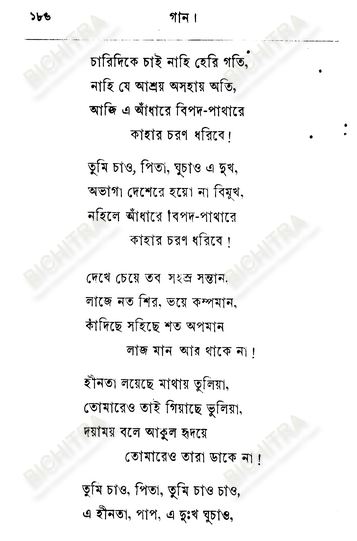 ১৮৬ গান।
চারিদিকে চাই নাহি হেরি গতি,
নাহি যে আশ্রয় অসহায় অতি,
আজি এ আঁধারে বিপদ-পাথারে
কাহার চরণ ধরিবে!
তুমি চাও, পিতা, ঘুচাও এ দুখ,
অভাগা দেশেরে হয়ো না বিমুখ,
নহিলে আঁধারে বিপদ-পাথারে
কাহার চরণ ধরিবে!
দেখে চেয়ে তব সহস্র সন্তান,
লাজে নত শির, ভয়ে কম্পমান,
কাঁদিছে সহিছে শত অপমান
লাজ মান আর থাকে না!
হীনতা লয়েছে মাথায় তুলিয়া,
তোমারেও তাই গিয়াছে ভুলিয়া,
দয়াময় বলে আকুল হৃদয়ে
তোমারেও তারা ডাকে না!
তুমি চাও, পিতা, তুমি চাও চাও,
এ হীনতা, পাপ, এ দুঃখ ঘুচাও,
BICHITRA